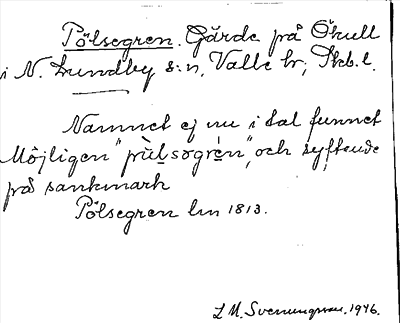 Pölsegren. Gärde på Ökull
i N. Lundby s:n, Valle hr; Skb. l.
Namnet ej nu i tal funnet
Möjligen "pùlsogrén", och syftende
på sankmark
Pölsegren lm 1813.
L M. Svenungsson. 1946.